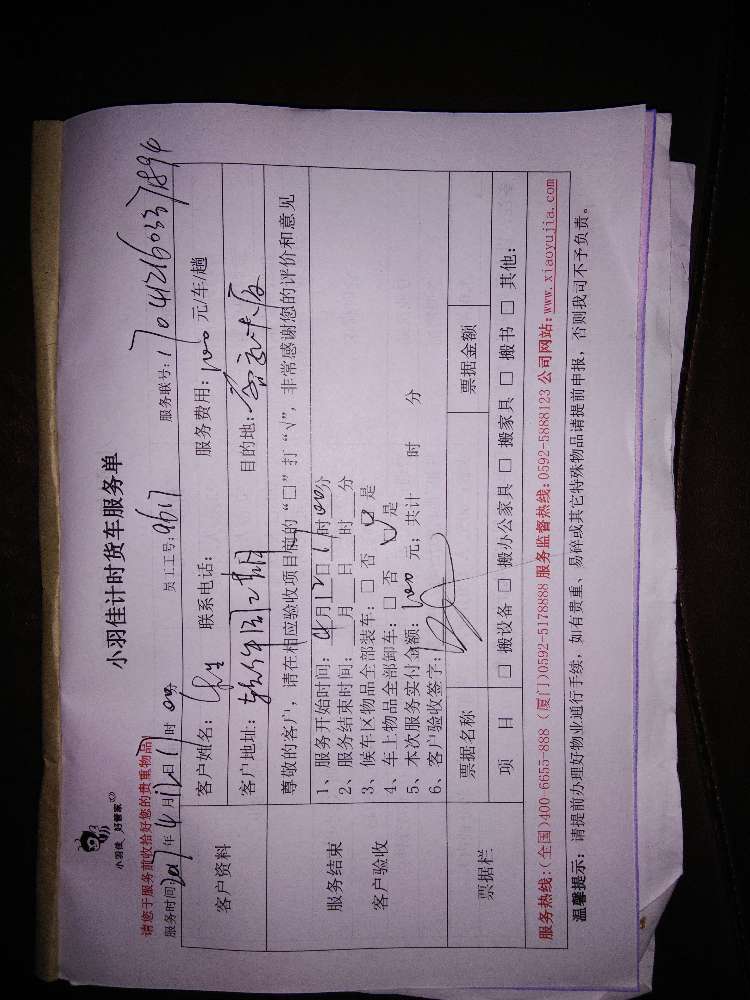 小羽佳 好管家
小羽佳计时货车服务单
请您于服务前收拾好您的贵重物品
服务时间:2017年4月12日17时00分 员工工号:9617 服务联号:1704121603371894
客户资料
客户姓名: 联系电话: 服务费用: 100元/车/趟
客户地址: 软件园二期 目的地:
尊敬的客户,请在相应验收项目前的“□”打“√”,非常感谢您的评价和意见
服务结束
客户验收
1、服务开始时间: 4月12日17时00分
2、服务结束时间: 月 日 时 分
3、候车区物品全部装车:□ 否 □ 是
4、车上物品全部卸车:□ 否 □ 是
5、本次服务实付金额: 100 元; 共计 时 分
6、客户验收签字:
票据栏
票据名称 票据金额
项 目 □ 搬设备 □ 搬办公家具 □ 搬家具 □ 搬书 □ 其他:
服务热线:(全国)400-6655-888 (厦门)0592-5178888 服务监督热线:0592-5888123 公司网站:www.xiaoyujia.com
温馨提示:请提前办理好物业通行手续,如有贵重、易碎或其它特殊物品请提前申报,否则我司不予负责。